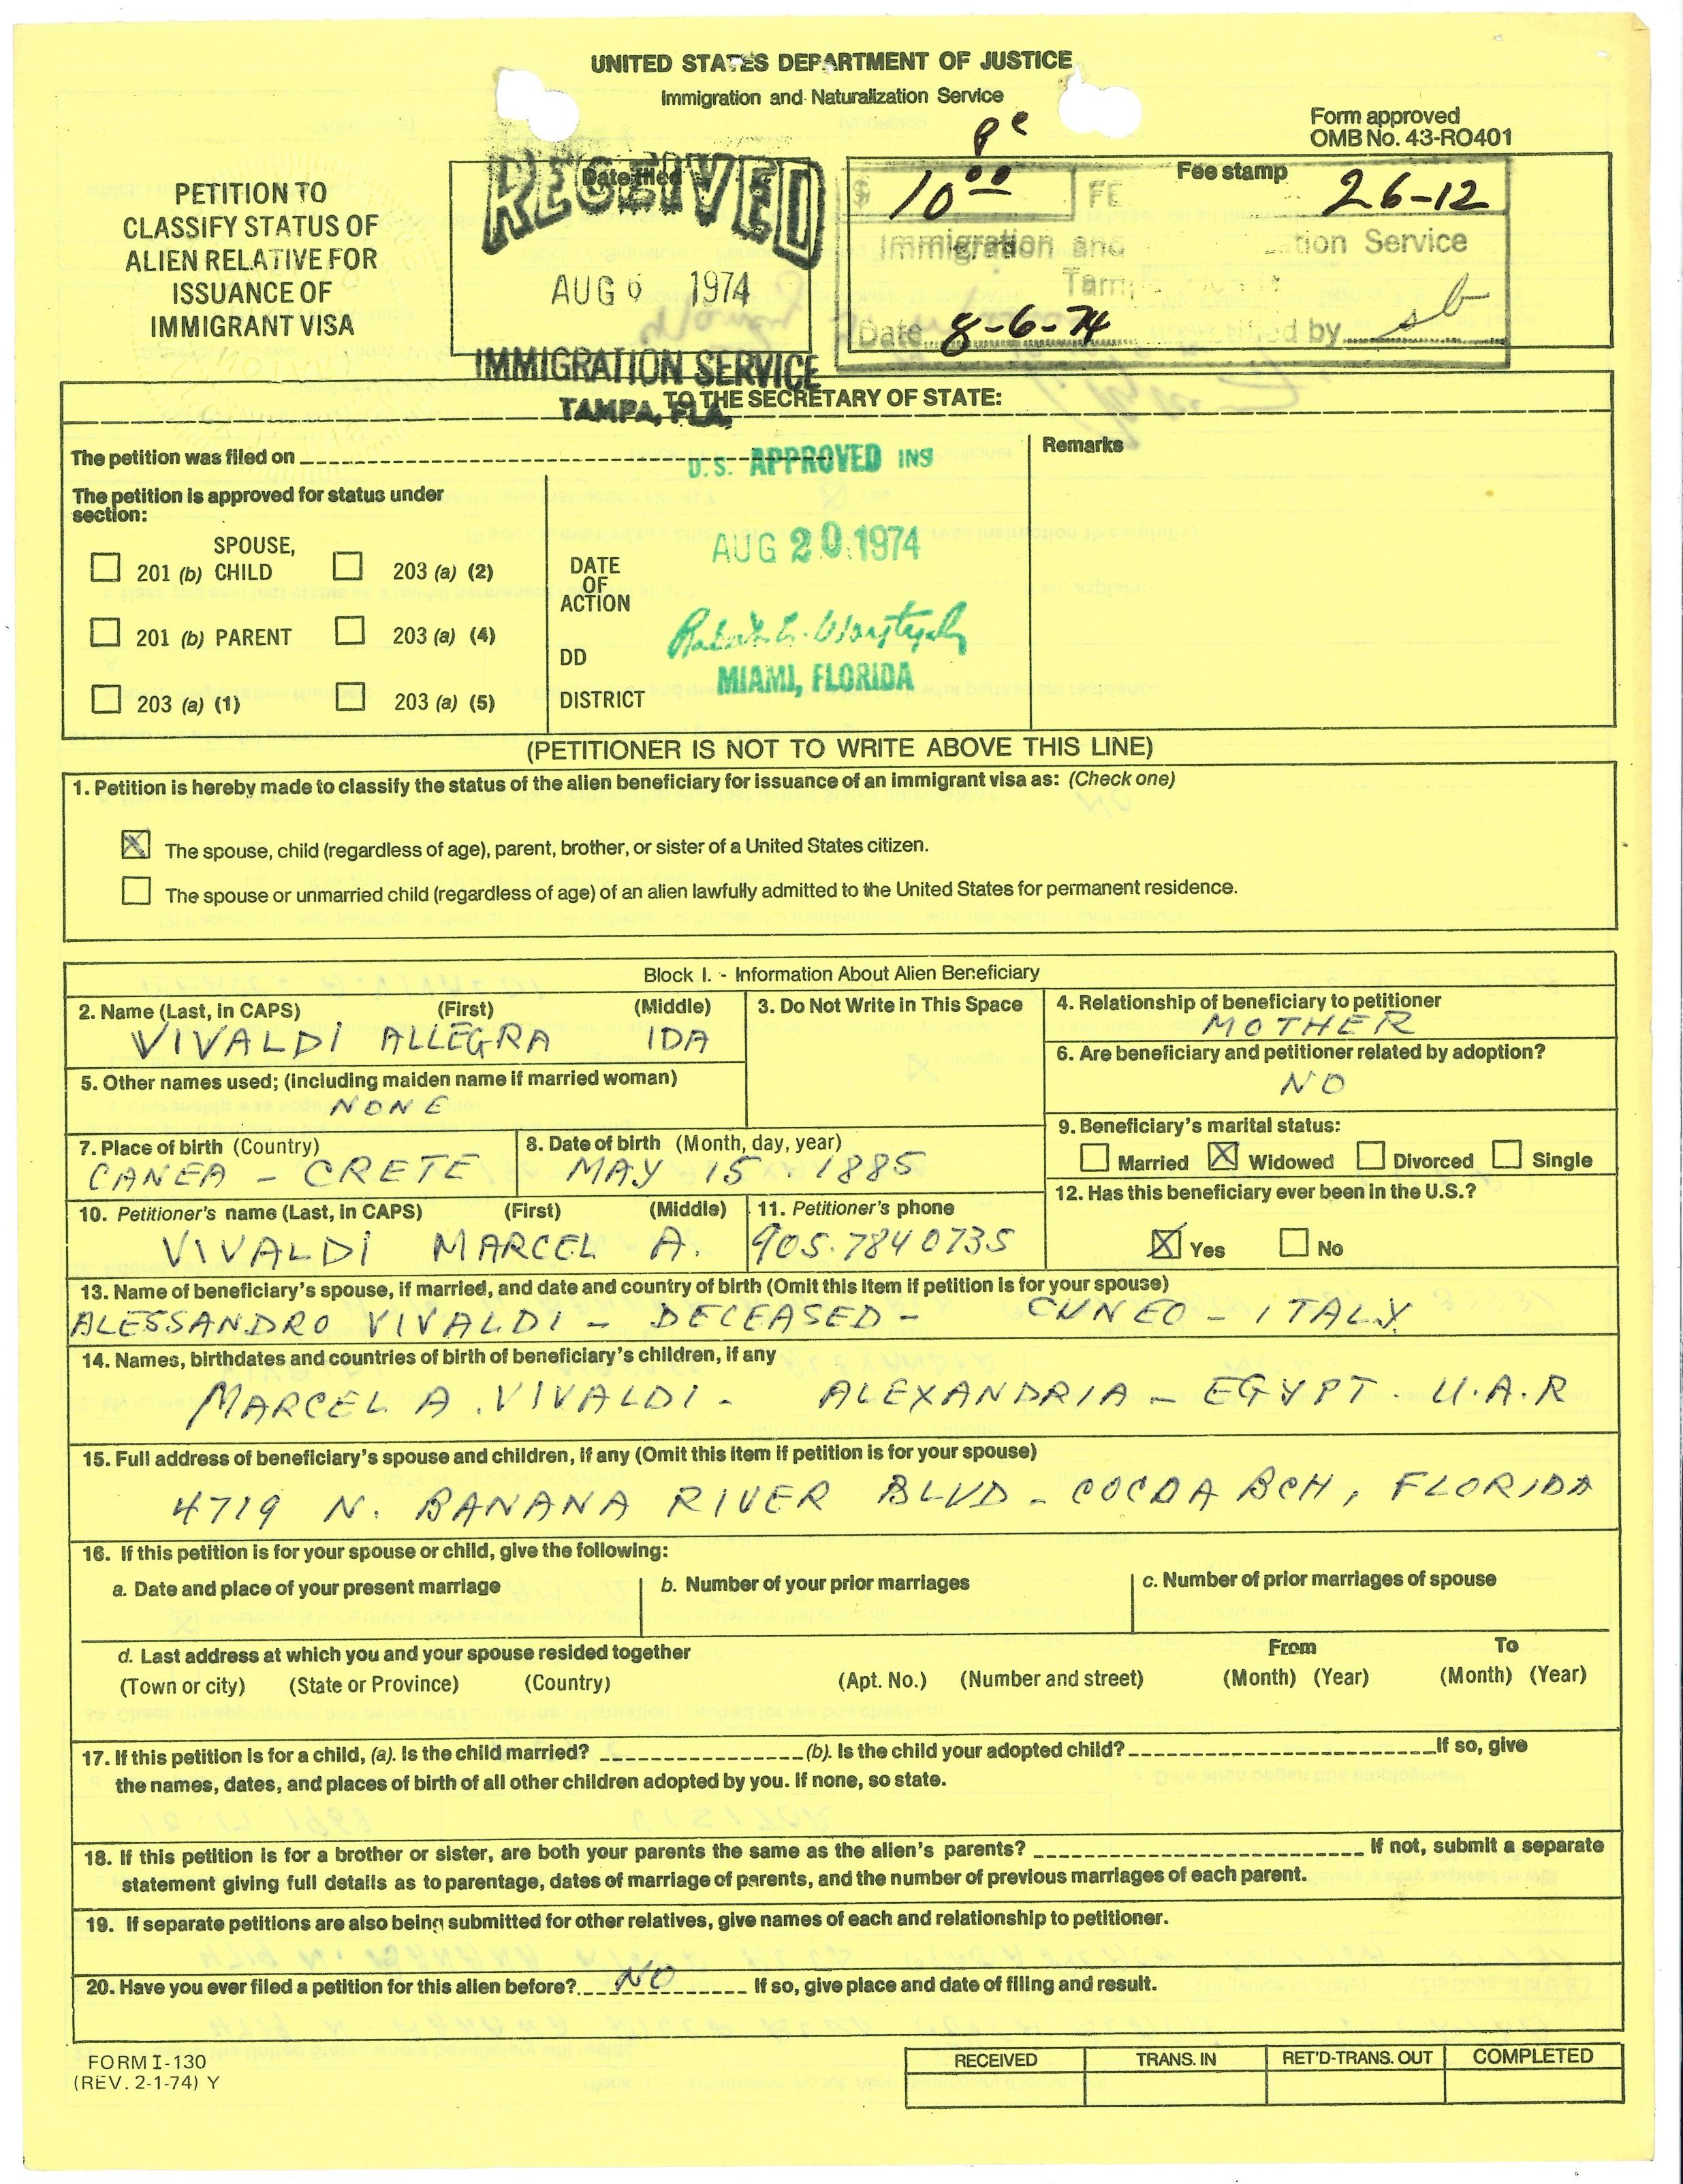 UNITED STATES DEPARTMENT OF JUSTICE
Immigration and Naturalization Service
Form approved
OMB No. 43-RO401
PETITION TO
CLASSIFY STATUS OF
ALIEN RELATIVE FOR
ISSUANCE OF
IMMIGRANT VISA
Date filed
RECEIVED
AUG 6 1974
IMMIGRATION SERVICE
TAMPA, FLA.
Fee stamp
$ 10 00 FE 26-12
Immigration and ation Service
Date 8-6-74 by sb
TO THE SECRETARY OF STATE:
The petition was filed on
U.S. APPROVED INS
Remarks
The petition is approved for status under
section:
AUG 20 1974
201 (b) SPOUSE, CHILD 203 (a) (2)
DATE OF ACTION
201 (b) PARENT 203 (a) (4)
DD
MIAMI, FLORIDA
203 (a) (1) 203 (a) (5)
DISTRICT
(PETITIONER IS NOT TO WRITE ABOVE THIS LINE)
1. Petition is hereby made to classify the status of the alien beneficiary for issuance of an immigrant visa as: (Check one)
X The spouse, child (regardless of age), parent, brother, or sister of a United States citizen.
The spouse or unmarried child (regardless of age) of an alien lawfully admitted to the United States for permanent residence.
Block I. - Information About Alien Beneficiary
2. Name (Last, in CAPS) (First) (Middle)
VIVALDI ALLEGRA IDA
3. Do Not Write in This Space
4. Relationship of beneficiary to petitioner
MOTHER
5. Other names used; (including maiden name if married woman)
NONE
6. Are beneficiary and petitioner related by adoption?
NO
7. Place of birth (Country)
CANEA - CRETE
8. Date of birth (Month, day, year)
MAY 15. 1885
9. Beneficiary's marital status:
Married X Widowed Divorced Single
10. Petitioner's name (Last, in CAPS) (First) (Middle)
VIVALDI MARCEL A.
11. Petitioner's phone
905.7840735
12. Has this beneficiary ever been in the U.S.?
X Yes No
13. Name of beneficiary's spouse, if married, and date and country of birth (Omit this item if petition is for your spouse)
ALESSANDRO VIVALDI - DECEASED - CUNEO - ITALY
14. Names, birthdates and countries of birth of beneficiary's children, if any
MARCEL A. VIVALDI - ALEXANDRIA - EGYPT - U.A.R
15. Full address of beneficiary's spouse and children, if any (Omit this item if petition is for your spouse)
4719 N. BANANA RIVER BLVD - COCOA BCH, FLORIDA
16. If this petition is for your spouse or child, give the following:
a. Date and place of your present marriage b. Number of your prior marriages c. Number of prior marriages of spouse
d. Last address at which you and your spouse resided together From To
(Town or city) (State or Province) (Country) (Apt. No.) (Number and street) (Month) (Year) (Month) (Year)
17. If this petition is for a child, (a). Is the child married? (b). Is the child your adopted child? If so, give
the names, dates, and places of birth of all other children adopted by you. If none, so state.
18. If this petition is for a brother or sister, are both your parents the same as the alien's parents? If not, submit a separate
statement giving full details as to parentage, dates of marriage of parents, and the number of previous marriages of each parent.
19. If separate petitions are also being submitted for other relatives, give names of each and relationship to petitioner.
20. Have you ever filed a petition for this alien before? NO If so, give place and date of filing and result.
FORM I-130
(REV. 2-1-74) Y
RECEIVED TRANS. IN RET'D-TRANS. OUT COMPLETED